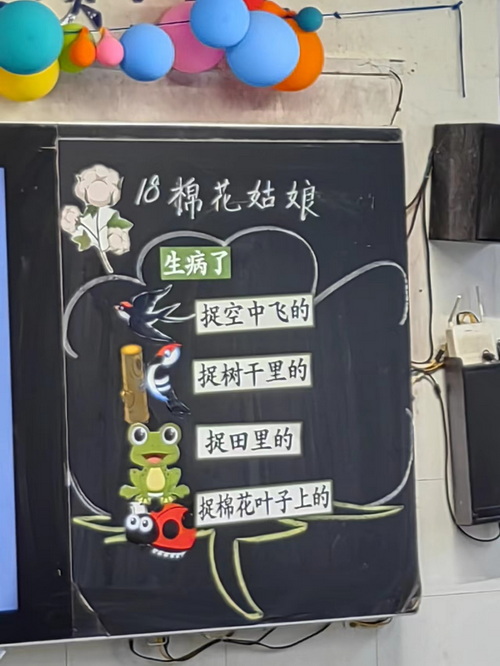 18 棉花姑娘
生病了
捉空中飞的
捉树干里的
捉田里的
捉棉花叶子上的